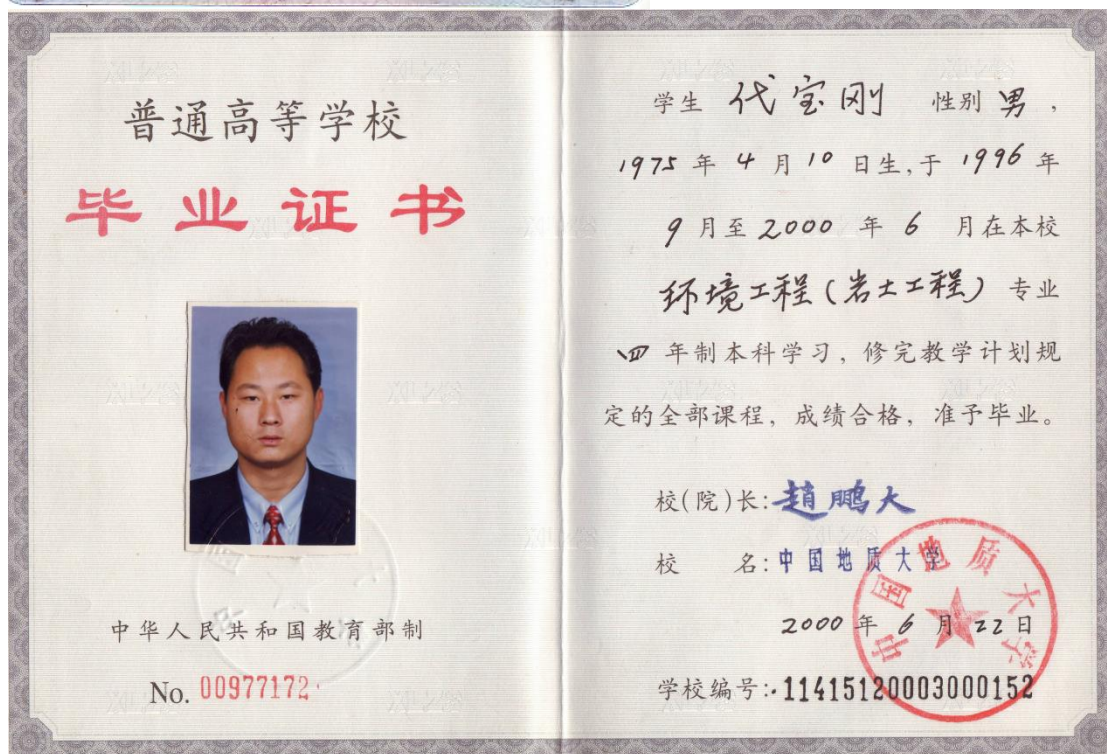 普通高等学校
毕业证书
中华人民共和国教育部制
No. 00977172
学生 代宝刚 性别 男，
1975 年 4 月 10 日生，于 1996 年
9 月至 2000 年 6 月在本校
环境工程(岩土工程) 专业
四 年制本科学习，修完教学计划规
定的全部课程，成绩合格，准予毕业。
校(院)长：趙鹏大
校 名：中国地质大学
2000 年 6 月 22 日
中国地质大学
学校编号：114151200003000152